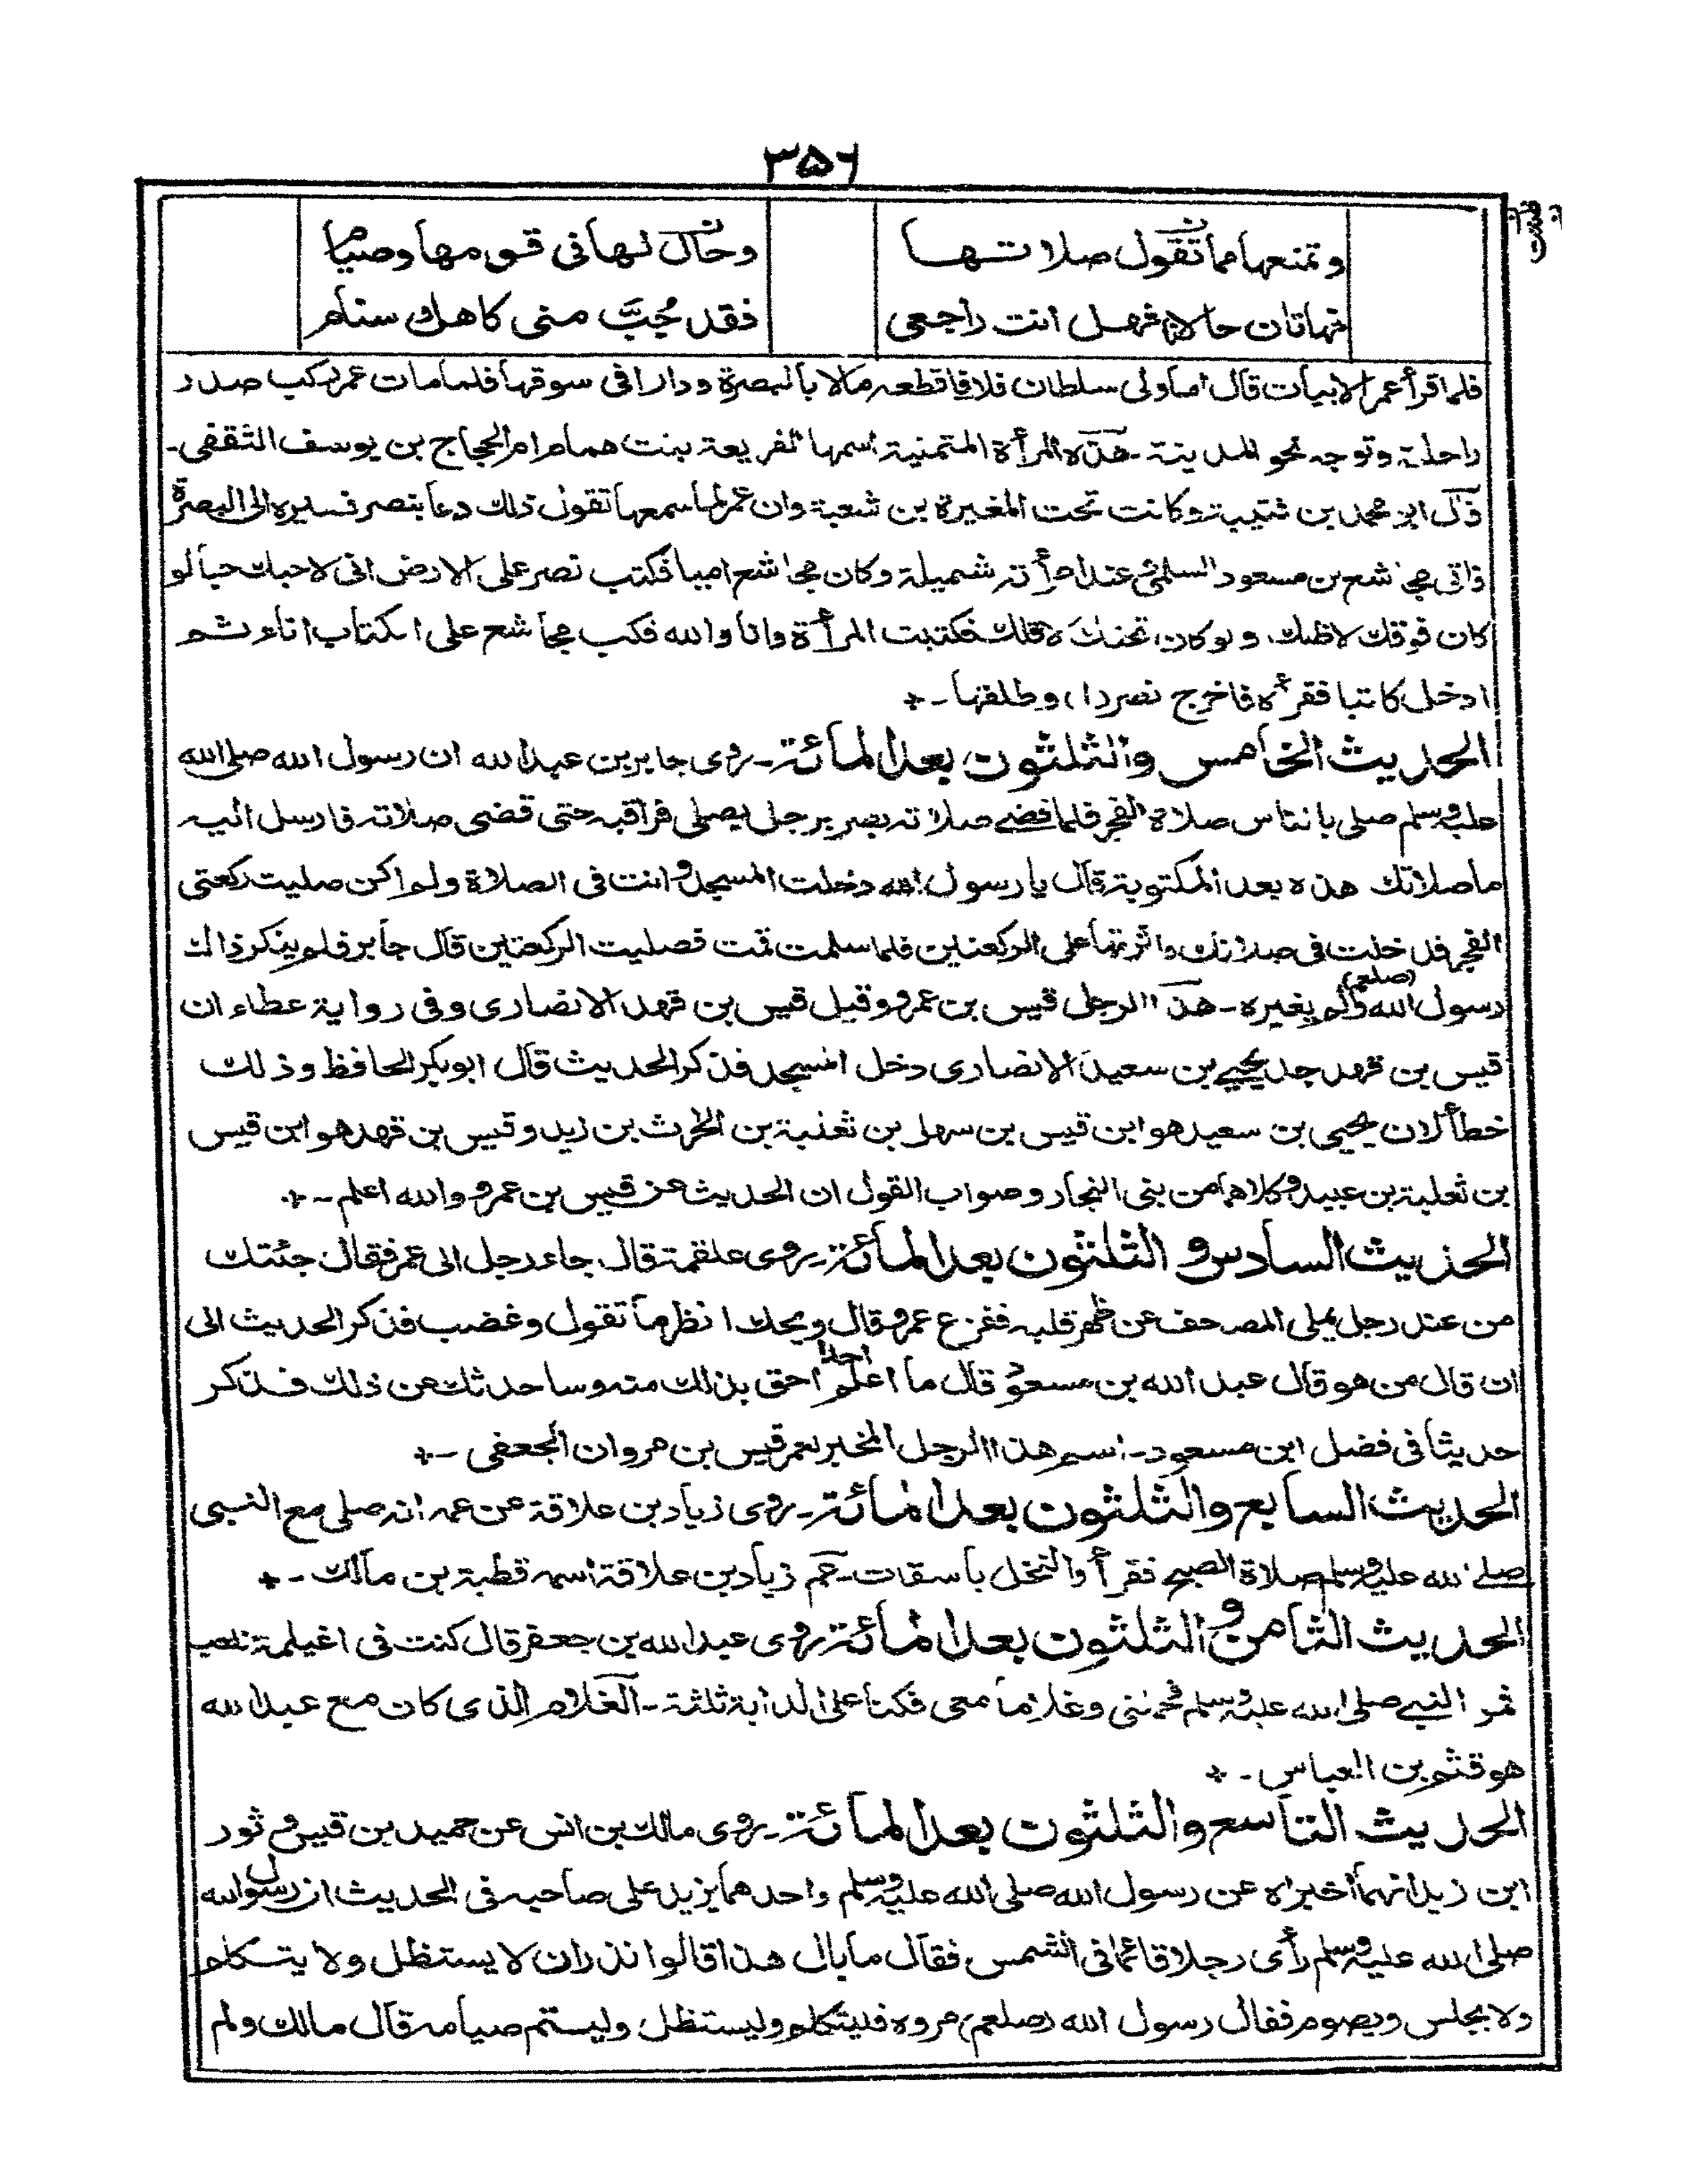 ٣٥٦
وتمنعها مما تقول صلاتها وحال لها فى قومها وصيام
فهاتان حالانا فهل انت راجعى فقد جُبَّ منى كاهل سنام
فلما قرأ عمر الابيات قال اما ولى سلطان فلا فاقطعه مالا بالبصرة ودارا فى سوقها فلما مات عمر ركب صدر
راحلته وتوجه نحو المدينة ـ هذه المرأة المتمنية اسمها الفريعة بنت همام ام الحجاج بن يوسف الثقفى ـ
قال ابو محمد بن قتيبة وكانت تحت المغيرة بن شعبة وان عمر لما سمعها تقول ذلك دعا بنصر فسيره الى البصرة
فاتى مجاشع بن مسعود السلمى عند امرأته شميلة وكان مجاشع اميا فكتب نصر على الارض انى لاحبك حبا لو
كان فوقك لاظلك ولو كان تحتك لاقلك فكتبت المرأة وانا والله فكب مجاشع على الكتاب اناء ثم
ادخل كاتبا فقرأه فاخرج نصردا، وطلقها ـ
الحديث الخامس والثلثون بعد المائة ـ روى جابر بن عبد الله ان رسول الله صلى الله
عليه وسلم صلى بالناس صلاة الفجر فلما قضى صلاته بصر برجل يصلى فراقبه حتى قضى صلاته فارسل اليه
ما صلاتك هذه بعد المكتوبة قال يا رسول الله دخلت المسجد وانت فى الصلاة ولم اكن صليت ركعتى
الفجر فدخلت فى صلاتك واثرتها على الركعتين فلما سلمت قمت فصليت الركعتين قال جابر فلم ينكر ذالك
رسول الله (صلعم) ولم يغيره ـ هذا الرجل قيس بن عمرو وقيل قيس بن قهد الانصارى وفى رواية عطاء ان
قيس بن قهد جد يحيى بن سعيد الانصارى دخل المسجد فذكر الحديث قال ابو بكر الحافظ وذلك
خطأ لان يحيى بن سعيد هو ابن قيس بن سهل بن ثعلبة بن الحرث بن زيد وقيس بن قهد هو ابن قيس
بن ثعلبة بن عبيد وكلاهما من بنى النجار وصواب القول ان الحديث عن قيس بن عمرو والله اعلم ـ
الحديث السادس و الثلثون بعد المائة ـ روى علقمة قال جاء رجل الى عمر فقال جئتك
من عند رجل يملى المصحف عن ظهر قلبه ففزع عمر وقال ويحك انظر ما تقول وغضب فذكر الحديث الى
ان قال من هو قال عبد الله بن مسعود قال ما اعلم احدا احق بذلك منه وساحدثك عن ذلك فذكر
حديثا فى فضل ابن مسعود ـ اسم هذا الرجل المخبر لعمر قيس بن مروان الجعفى ـ
الحديث السابع والثلثون بعد المائة ـ روى زياد بن علاقة عن عمه انه صلى مع النبى
صلى الله عليه وسلم صلاة الصبح فقرأ والنخل باسقات ـ عم زياد بن علاقة اسمه قطبة بن مالك ـ
الحديث الثامن و الثلثون بعد المائة روى عبد الله بن جعفر قال كنت فى اغيلمة نلعب
فمر النبى صلى الله عليه وسلم فحملنى وغلاما معى فكنا على الدابة ثلثة ـ الغلام الذى كان مع عبد الله
هو قثم بن العباس ـ
الحديث التاسع والثلثون بعد المائة ـ روى مالك بن انس عن حميد بن قيس و ثور
ابن زيد انهما اخبراه عن رسول الله صلى الله عليه وسلم واحدهما يزيد على صاحبه فى الحديث ان رسول الله
صلى الله عليه وسلم رأى رجلا قائما فى الشمس فقال ما بال هذا قالوا نذر ان لا يستظل ولا يتكلم
ولا يجلس ويصوم فقال رسول الله (صلعم) مروه فليتكلم وليستظل وليستم صيامه قال مالك ولم